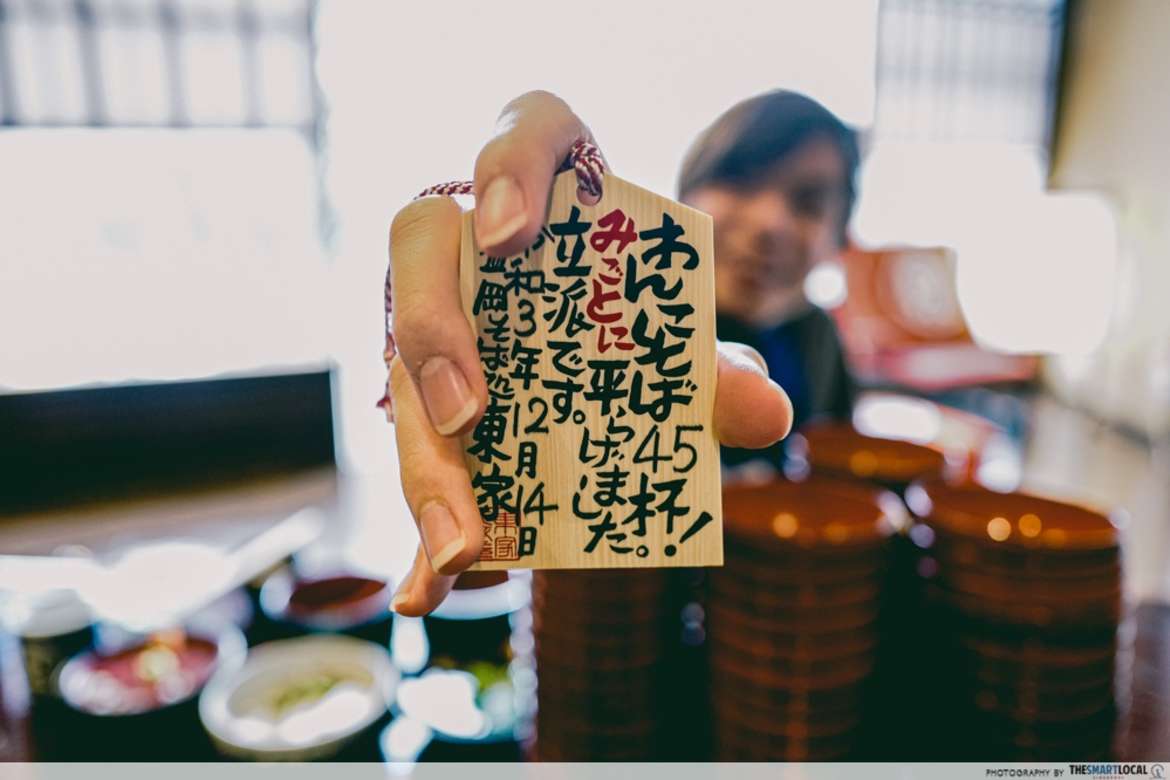 わんこそば45杯！
みごとに平らげました。
立派です。
和3年12月14日
盛岡そば処東家
PHOTOGRAPHY BY THESMARTLOCAL